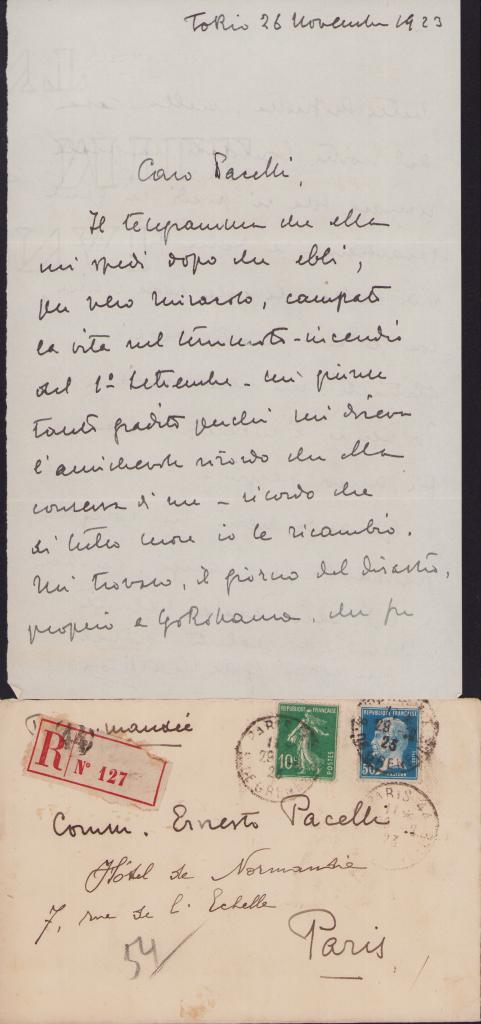 Tokio 26 Novembre 1923
Caro Pacelli,
Il telegramma che ella
mi spedì dopo che ebbi,
per vero miracolo, campato
la vita nel terremoto-incendio
del 1º Settembre - mi giunse
tanto gradito perchè mi diceva
l'amichevole ricordo che ella
conserva di me - ricordo che
di tutto cuore io le ricambio.
Mi trovavo, il giorno del disastro,
proprio a Yokohama, che fu
R Nº 127
REPUBLIQUE FRANÇAISE
10c
POSTES
REPUBLIQUE FRANÇAISE
50c
PASTEUR
PARIS
29
28
23
PARIS 44
23
Comm. Ernesto Pacelli
Hôtel de Normandie
7, rue de l'Echelle
Paris
54